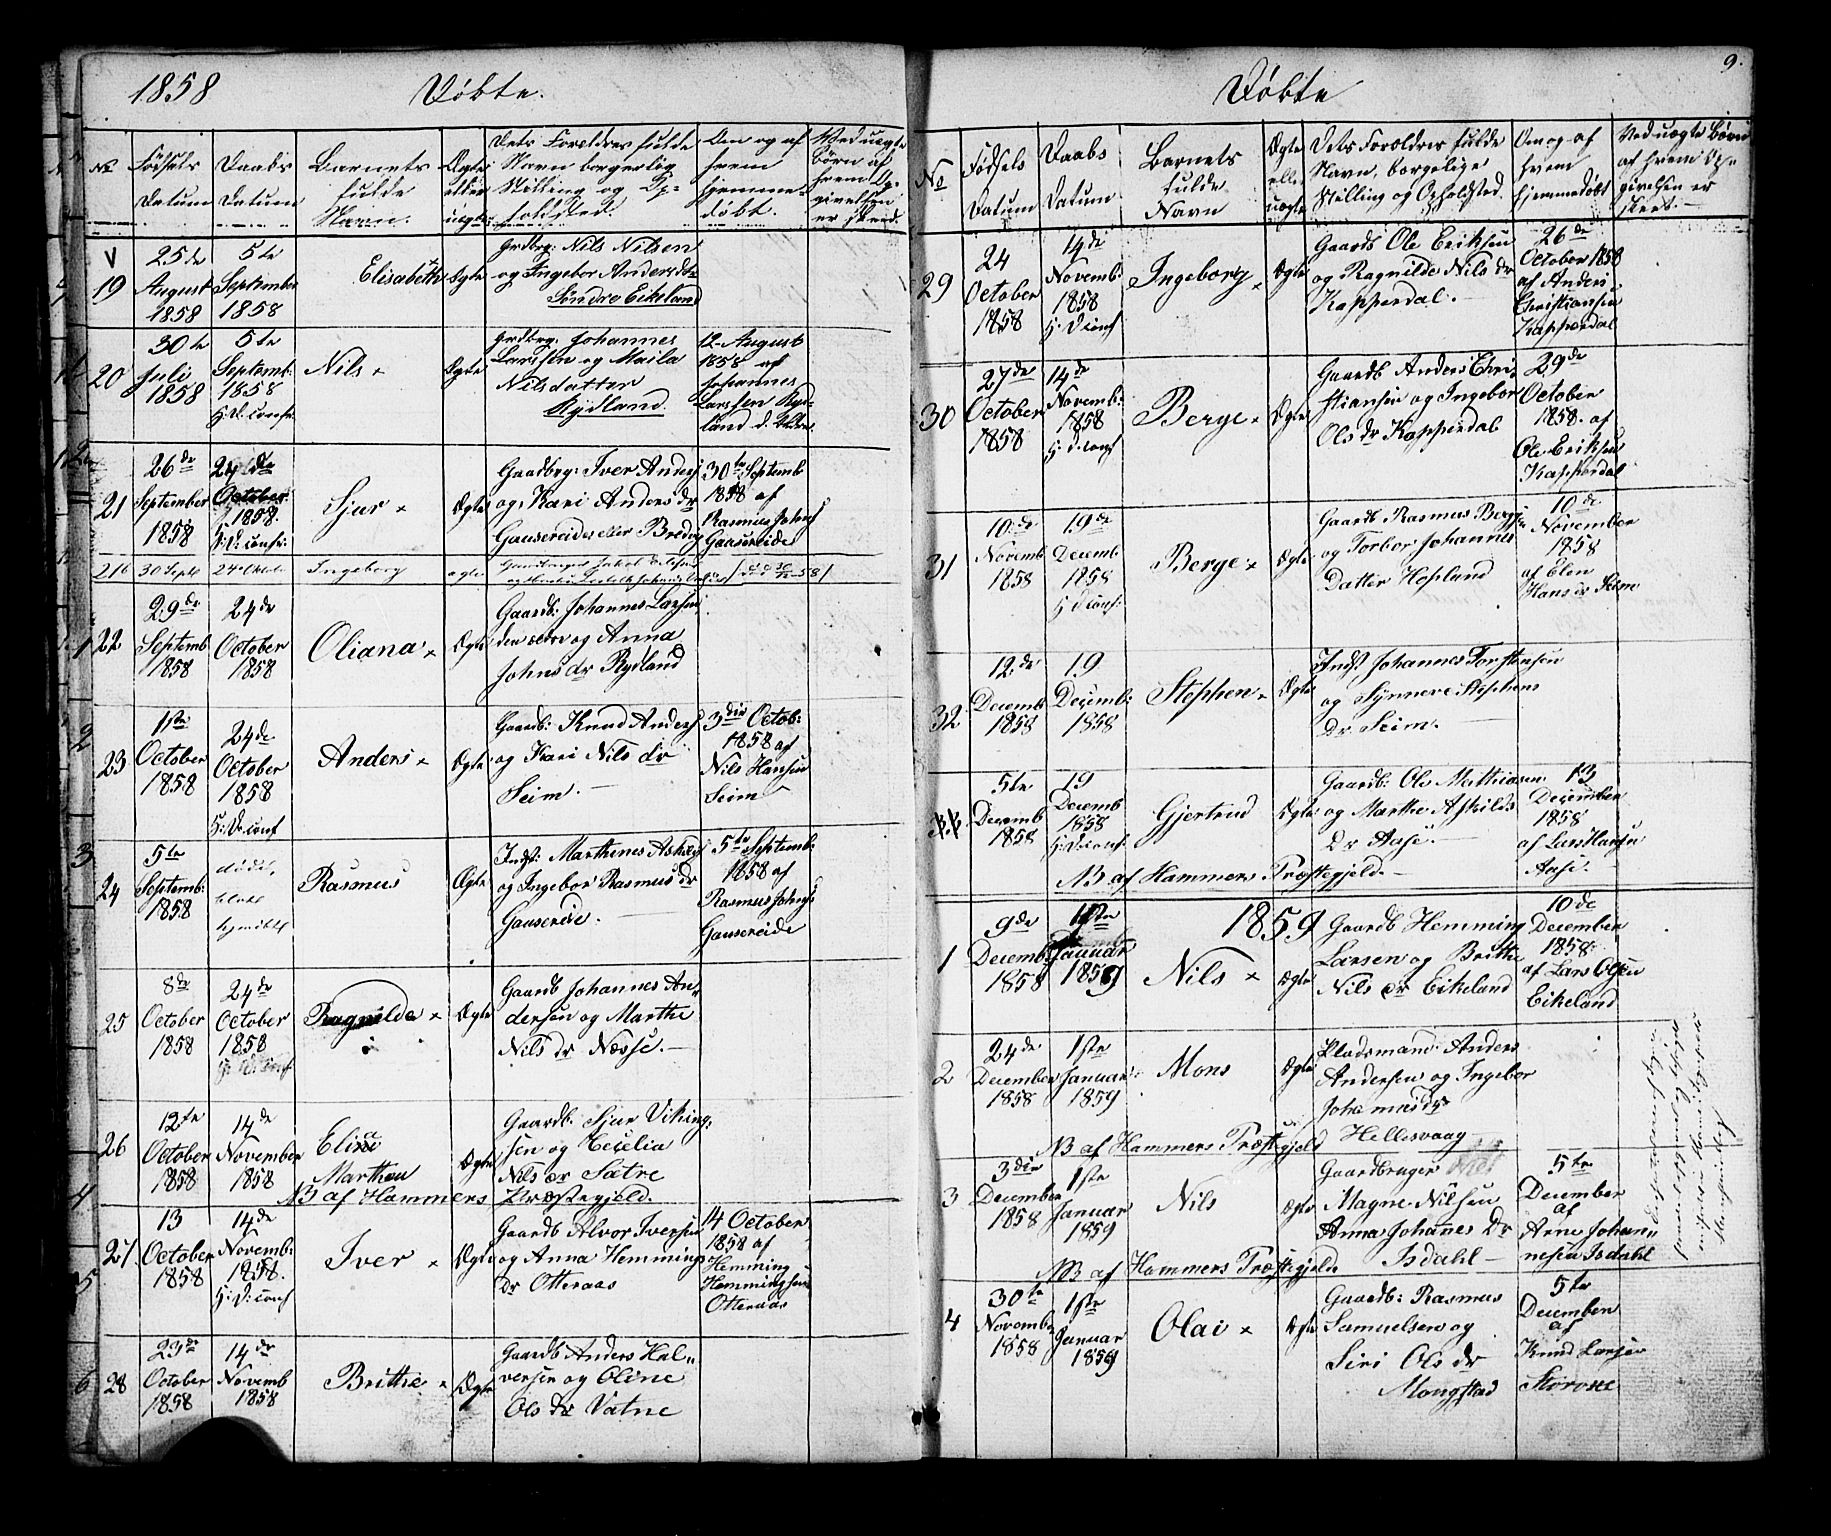 1858 Döbte.
No
Födsels
Datum
Daabs
Datum
Barnets
fulde
Navn.
Ægte
eller
uægte
Dets Foreldres fulde
Navn borgerlig
Stilling og Op=
holdsted.
Om og af
hvem
hjemme=
döbt.
Ved uægte
Börn af
hvem Op=
givelsen
er skeed.
19
25de
August
1858
5te
Septembr
1858
Elisabeth
Ægte
Grdbrg: Nils Nilsen
og Ingebor Andersdr
Söndre Eikeland
20
30te
Juli
1858
5te
Septemb:
1858
H: D: conf:
Nils
Ægte
Grdbrg: Johannes
Larssen og Maila
Nilsdatter
Rydland.
12 August
1858 af
Johannes
Larssen Ryd-
land
21
26de
September
1858
24de
October
1858.
H: D: conf:
Sjur
Ægte
Gaardbrg: Iver Anders
og Kari Anders dr
Gausereide eller Bredvig
30te Septemb
1858 af
Rasmus Johns
Gausereide
21b
30 Septb
24de Oktbr
Ingeborg
ægte
22
29de
Septemb
1858
24de
October
1858
Oliana
Ægte
Gaardb: Johannes Larsen
og Anna
Johns dr Rydland
23
1ste
October
1858
24de
October
1858
H: D: conf
Anders
Ægte
Gaardb: Knud Anders
og Kari Nils dr
Seim.
3die Octob:
1858 af
Nils Hansen
Seim
24
5te
Septemb:
1858
Rasmus
Ægte
Indst: Marthenes Askels
og Ingebor Rasmus dr
Gausereide.
5te Septemb:
1858 af
Rasmus Johns
Gausereide
25
8de
October
1858
24de
October
1858
H: D: conf
Ragnilda
Ægte
Gaardb Johannes An=
dersen og Marthe
Nils dr Næsse.
26
12te
October
1858
14de
November
1858
Marthea
Ægte
Gaardb: Sjur Viking;
sen og Cecilia
Nils dr Sætre
NB af Hammers Præstegjeld.
27
13
October
1858
14de
Novemb:
1858.
H: D: conf
Iver
Ægte
Gaardb Alvor Iversen
og Anna Hemmings
Dr Otteraas
14 October
1858 af
Hemming
Hemmingsen
Otteraas
28
23de
October
1858
14de
Novemb
1858
Brithe
Ægte
Gaardb Anders Hal=
versen og Oline
Ols dr Vatne
Döbte
9.
No
Födsels
Datum
Daabs
Datum.
Barnets
fulde
Navn
Ægte
eller
uægte
Dets Foreldres fulde
Navn, borgelige
Stilling og Opholdsted.
Om og af
hvem
hjemmedöbt
Ved uægte Börn
af hvem Op=
givelsen er
skeet.
29
24
October
1858
14de
Novemb:
1858
H: D conf:
Ingeborg
Ægte
Gaardb Ole Eriksen
og Ragnilde Nils dr
Kapperdal.
26de
October 1858
af Anders
Christiansen
Kapperdal
30
27de
October
1858
14de
Novemb:
1858
H: D: conf
Berge
Ægte
Gaardb Anders Chri
stiansen og Ingebor
Ols dr Kapperdal
29de
October
1858. af
Ole Eriksen
Kapperdal
31
10de
Novemb
1858
19de
Decemb
1858
H: D conf:
Berge
Ægte
Gaardb Rasmus
og Torbor Johannes
Datter Hopland
10de
November
1858
af Elen
Hans dr Seim
32
12de
Decemb
1858
19
Decemb:
1858
Stephen
Ægte
Indst Johannes Torstensen
og Synneve Stephens
Dr Seim.
5te
Decemb
1858
19
Decemb
1858
H: D: conf:
Gjertrud
Ægte
Gaardb: Ole Mathiasen
og Marthe Askilds
Dr Aase.
13
December
1858
af Lars Hansen
Aase.
NB af Hammers Præstegjeld.
1859
1
9de
Decemb:
1858
1ste
Januar
1859
Nils
Ægte
Gaardb Hemming
Larsen og Brithe
Nils dr Eikeland
10de
December
1858.
af Lars Olsen
Eikeland
2
24de
December
1858
1ste
Januar
1859
Mons
Ægte
Pladsmand: Anders
Andersen og Ingebor
Johannesdr
Hellesvaag
NB af Hammers Præstegjeld
3
3die
December
1858
1ste
Januar
1859
Nils
Ægte
Gaardbruger
Magne Nilsen
Anna Johanes Dr
Isdahl
5te
December
af
Arne Johan=
nesen Isdahl
NB af Hammers Præstegjeld
4
30te
Novembr
1858
1ste
Januar
1859
Olai
Ægte
Gaardb: Rasmus
Samuelsen og
Siri Ols dr
Mongstad
5te
December
af
Knud Larsen